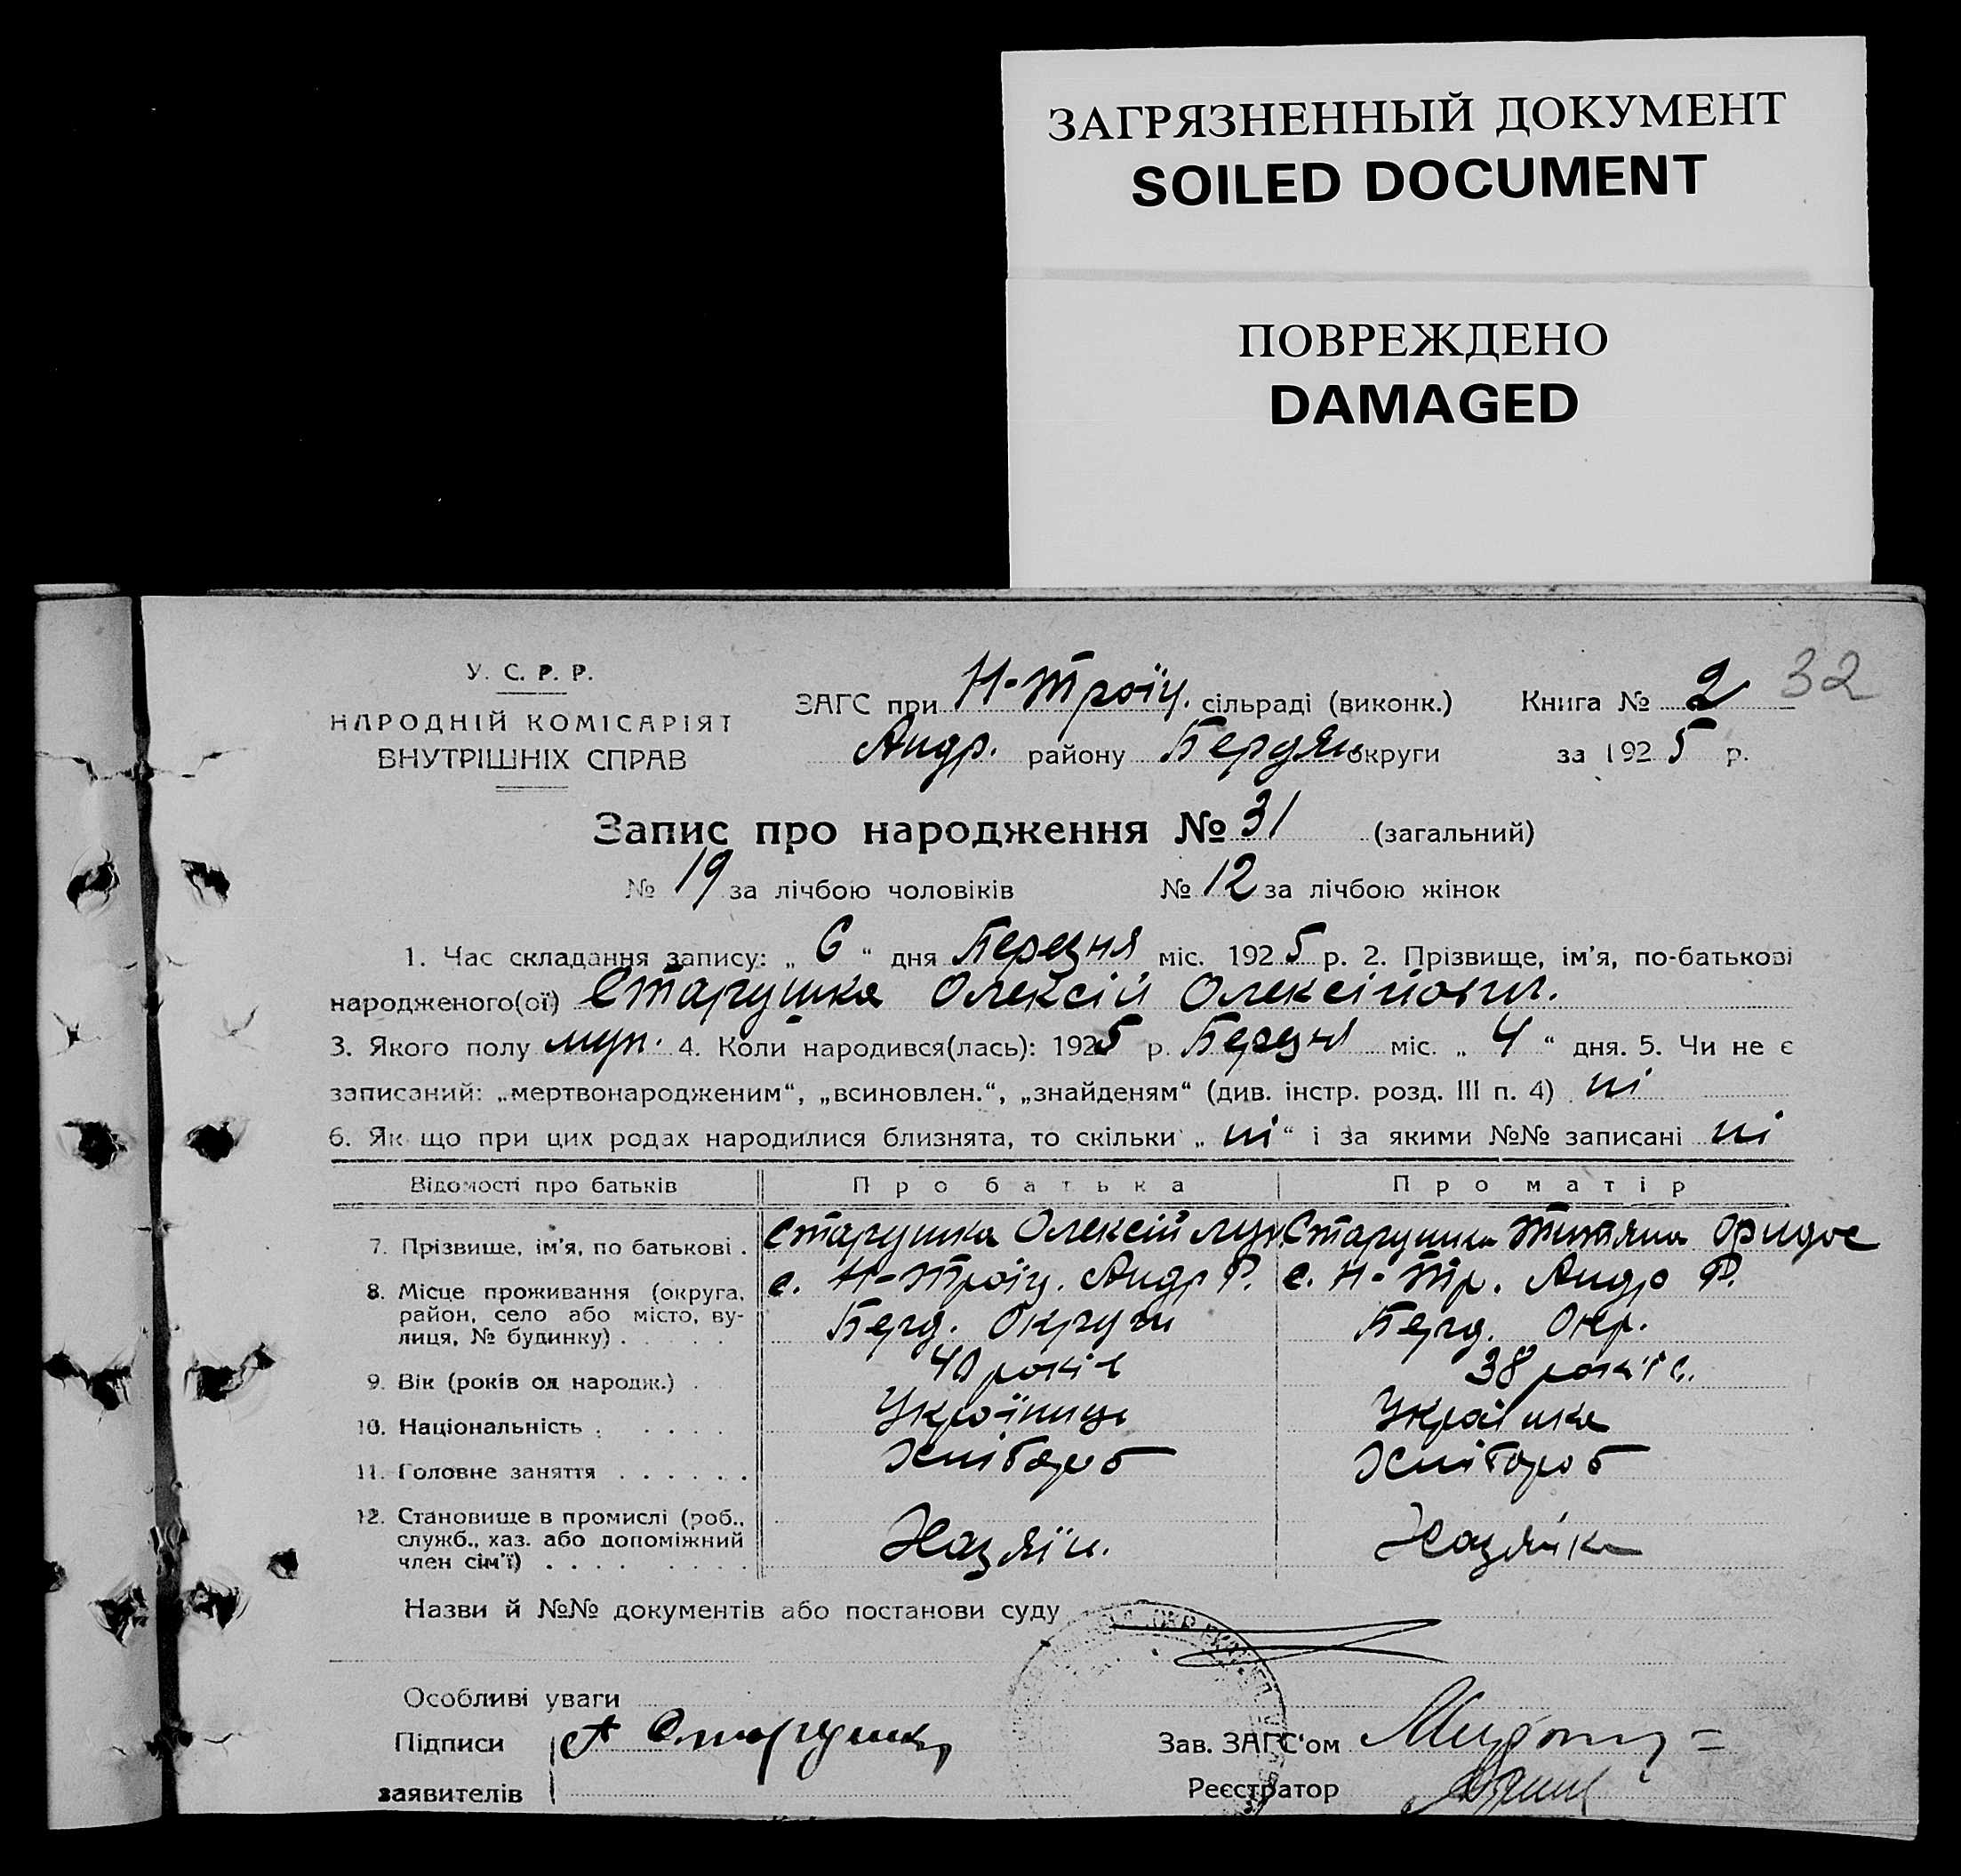 ЗАГРЯЗНЕННЫЙ ДОКУМЕНТ
SOILED DOCUMENT
ПОВРЕЖДЕНО
DAMAGED
32
У. С. Р. Р.
НАРОДНІЙ КОМІСАРІЯТ
ВНУТРІШНІХ СПРАВ
ЗАГС при Н-Троїц. сільраді (виконк.) Книга № 2
Андр. району Бердян округи за 1925 р.
Запис про народження № 31 (загальний)
№ 19 за лічбою чоловіків № 12 за лічбою жінок
1. Час складання запису: „ 6 “ дня Березня міс. 1925 р. 2. Прізвище, ім’я, по-батькові
народженого(ої) Старушка Олексій Олексійович.
3. Якого полу муж. 4. Коли народився(лась): 1925 р. Березня міс. „ 4 “ дня. 5. Чи не є
записаний: „мертвонародженим“, „всиновлен.“, „знайденям“ (див. інстр. розд. III п. 4) ні
6. Як що при цих родах народилися близнята, то скільки „ ні “ і за якими №№ записані ні
Відомості про батьків Про батька Про матір
7. Прізвище, ім’я, по батькові . Старушка Олексій Старушка Тетяна
8. Місце проживання (округа, с. Н-Троїц. Андр Р. с. Н-Тр. Андр Р.
район, село або місто, ву-
лиця, № будинку) . Берд. Округи Берд. Окр.
9. Вік (років од народж.) . 40 років 38 років.
10. Національність . Українець Українка
11. Головне заняття . Хлібороб Хлібороб
12. Становище в промислі (роб.,
служб., хаз. або допоміжний
член сім’ї) . Хазяїн. Хазяйка
Назви й №№ документів або постанови суду
Особливі уваги
Підписи А Старушка Зав. ЗАГС‘ом
заявителів Реєстратор